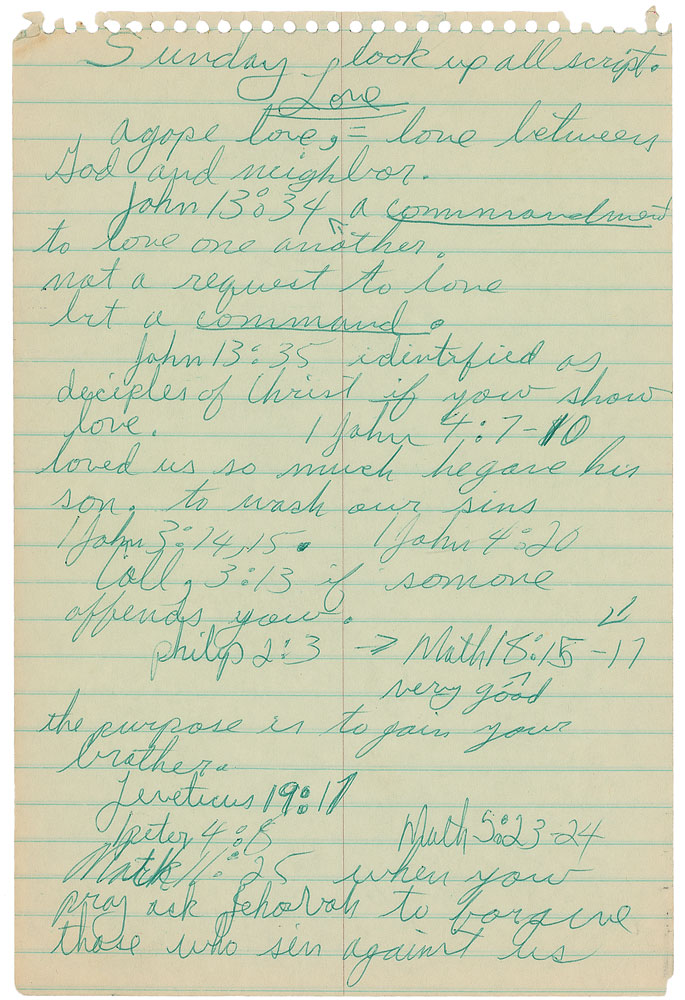 Sunday look up all script.
Love
agape love, = love between
God and neighbor.
John 13:34 a commandment
to love one another.
not a request to love
but a command.
John 13:35 identified as
deciples of Christ if you show
love. 1 John 4:7-10
loved us so much he gave his
son. to wash our sins
1 John 3:14,15. 1 John 4:20
Coll, 3:13 if somone
offends you.
philip 2:3 → Math 18:15-17
very good
the purpose is to gain your
brother.
Leveticus 19:17
1 peter 4:8 Math 5:23-24
Mark 11:25 when you
pray ask Jehovah to forgive
those who sin against us